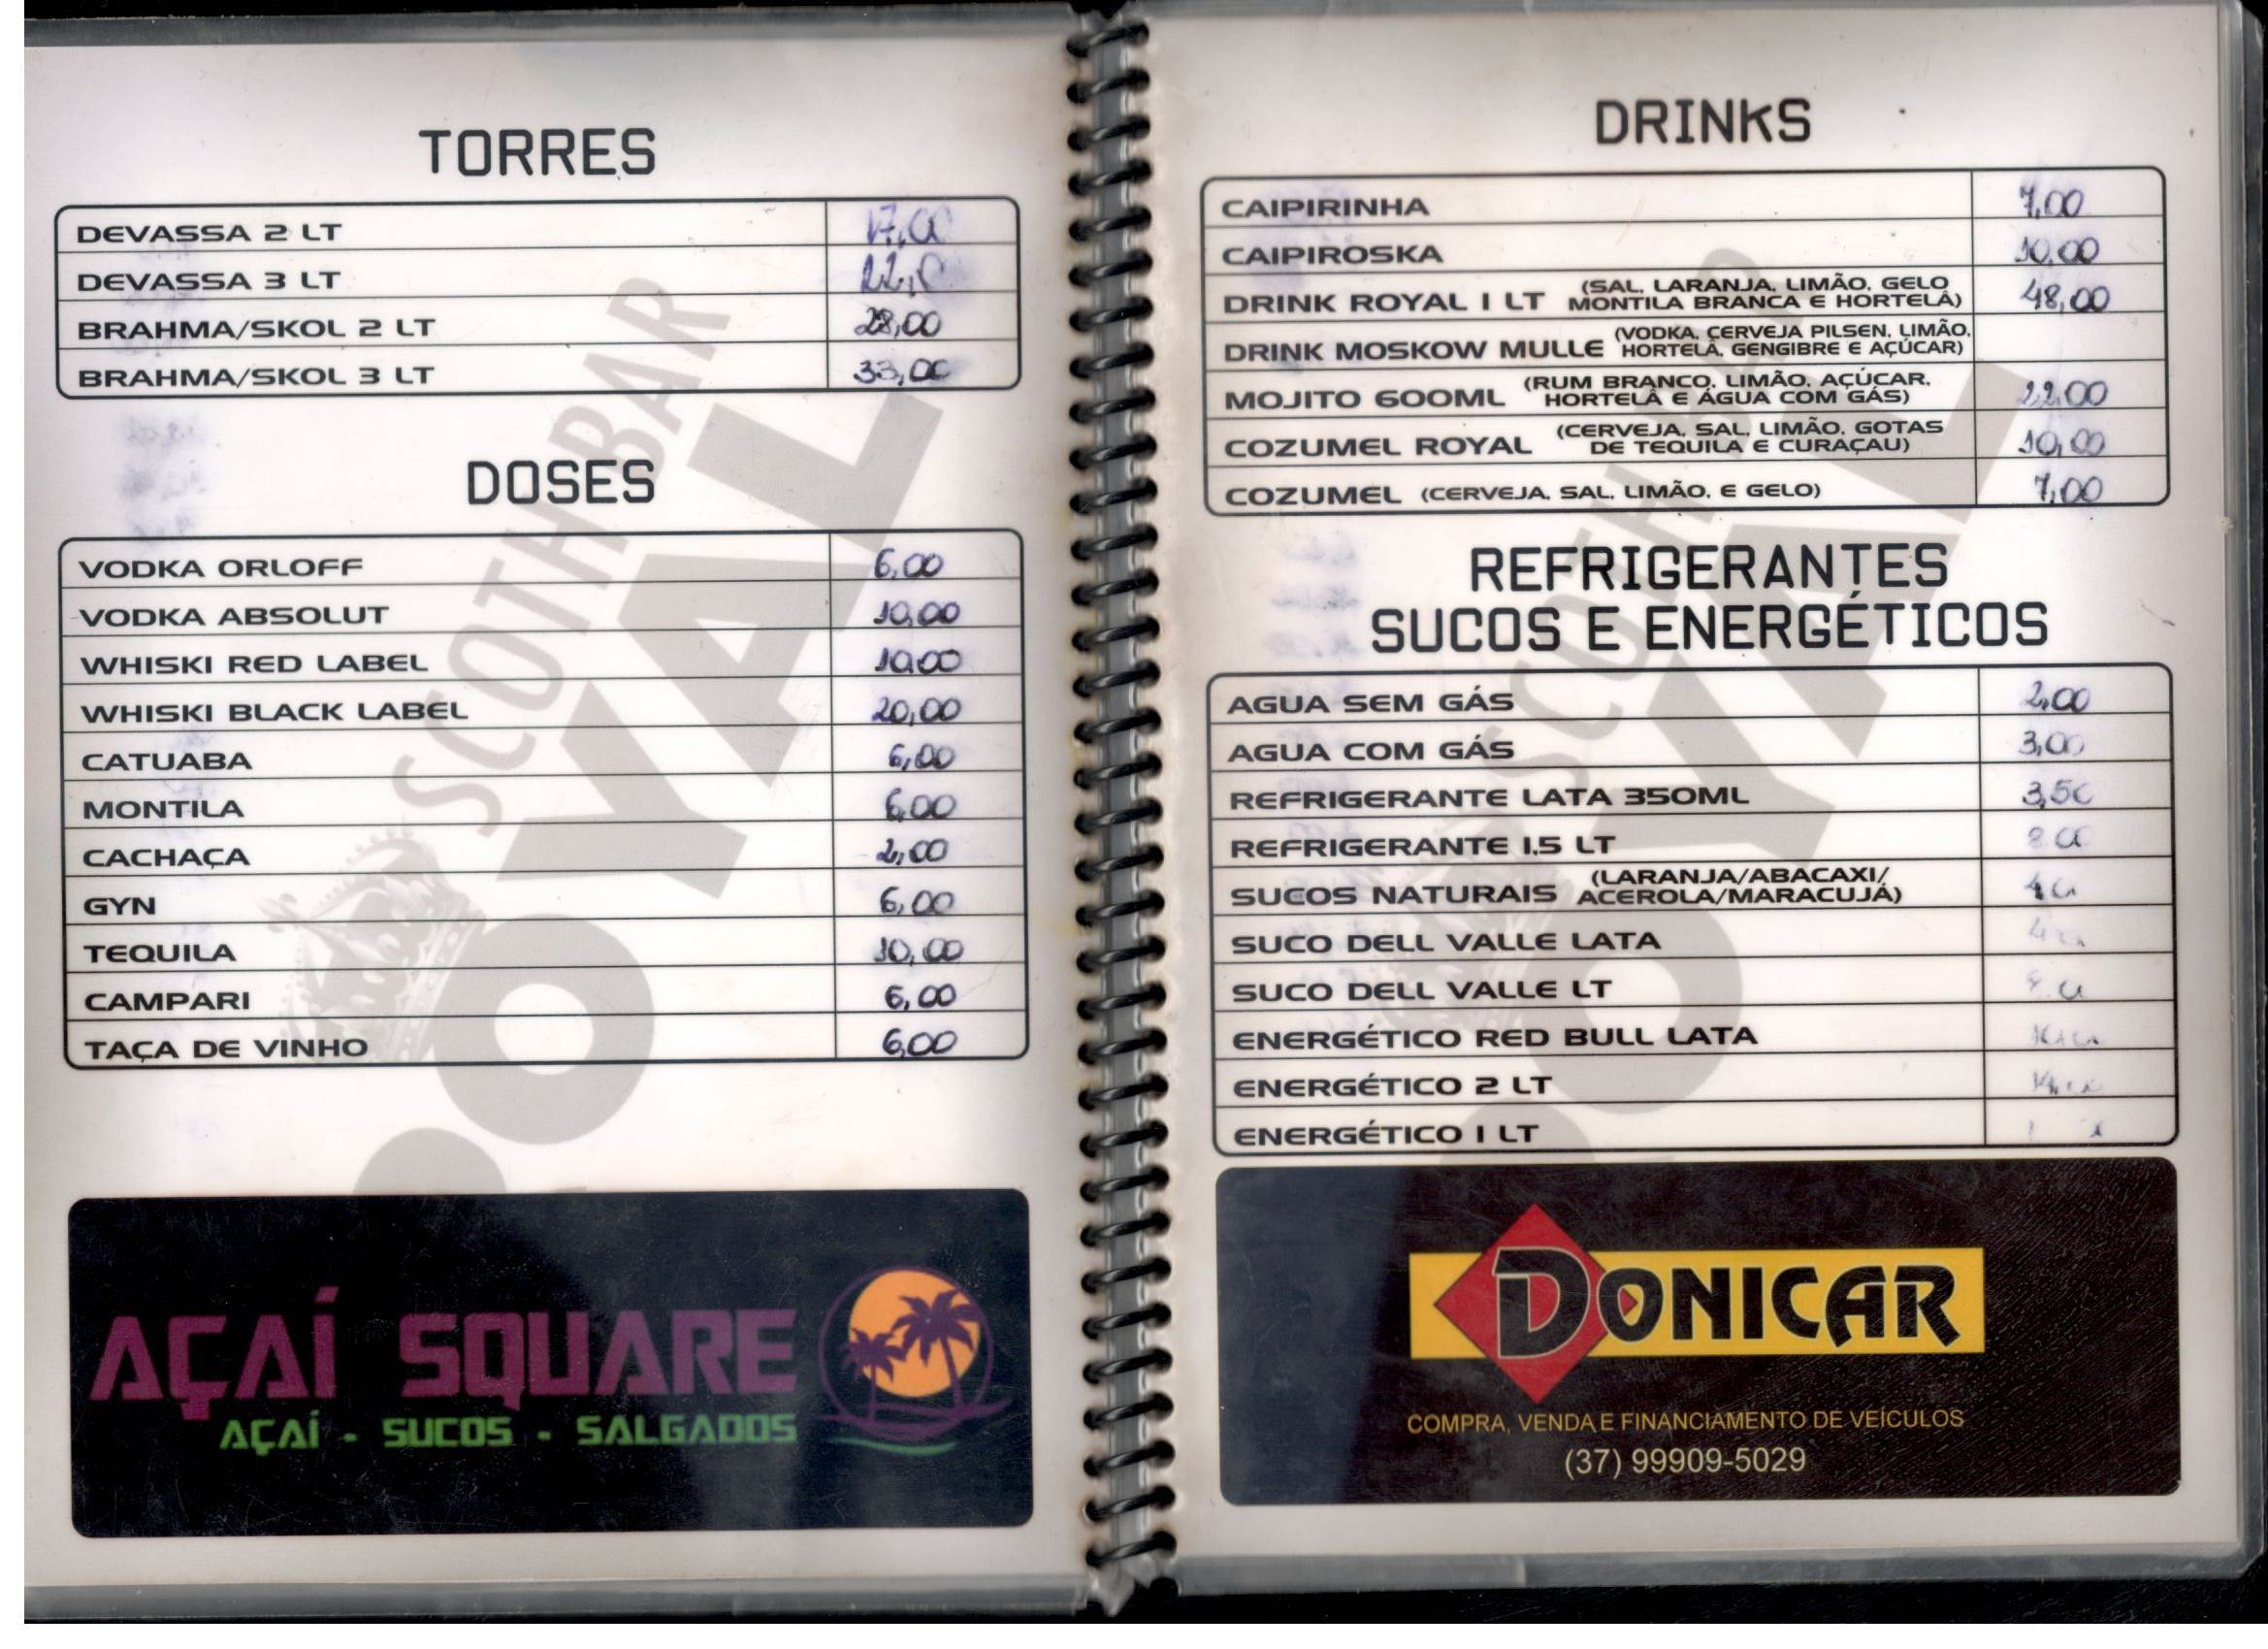 TORRES
DEVASSA 2 LT 17,00
DEVASSA 3 LT
BRAHMA/SKOL 2 LT 28,00
BRAHMA/SKOL 3 LT 33,00
DOSES
VODKA ORLOFF 6,00
VODKA ABSOLUT 10,00
WHISKI RED LABEL 10,00
WHISKI BLACK LABEL 20,00
CATUABA 6,00
MONTILA 6,00
CACHAÇA 2,00
GYN 6,00
TEQUILA 10,00
CAMPARI 6,00
TAÇA DE VINHO 6,00
SCOTH BAR
ROYAL
AÇAÍ SQUARE
AÇAÍ - SUCOS - SALGADOS
DRINKS
CAIPIRINHA 7,00
CAIPIROSKA 10,00
DRINK ROYAL 1 LT (SAL, LARANJA, LIMÃO, GELO
MONTILA BRANCA E HORTELÃ) 48,00
DRINK MOSKOW MULLE (VODKA, CERVEJA PILSEN, LIMÃO,
HORTELÃ, GENGIBRE E AÇÚCAR)
MOJITO 600ML (RUM BRANCO, LIMÃO, AÇÚCAR,
HORTELÃ E ÁGUA COM GÁS) 22,00
COZUMEL ROYAL (CERVEJA, SAL, LIMÃO, GOTAS
DE TEQUILA E CURAÇAU) 10,00
COZUMEL (CERVEJA, SAL, LIMÃO, E GELO) 7,00
REFRIGERANTES
SUCOS E ENERGÉTICOS
AGUA SEM GÁS 2,00
AGUA COM GÁS 3,00
REFRIGERANTE LATA 350ML 3,50
REFRIGERANTE 1,5 LT 8,00
SUCOS NATURAIS (LARANJA/ABACAXI/
ACEROLA/MARACUJÁ)
SUCO DELL VALLE LATA
SUCO DELL VALLE LT
ENERGÉTICO RED BULL LATA
ENERGÉTICO 2 LT
ENERGÉTICO 1 LT
SCOTH BAR
ROYAL
DONICAR
COMPRA, VENDA E FINANCIAMENTO DE VEÍCULOS
(37) 99909-5029